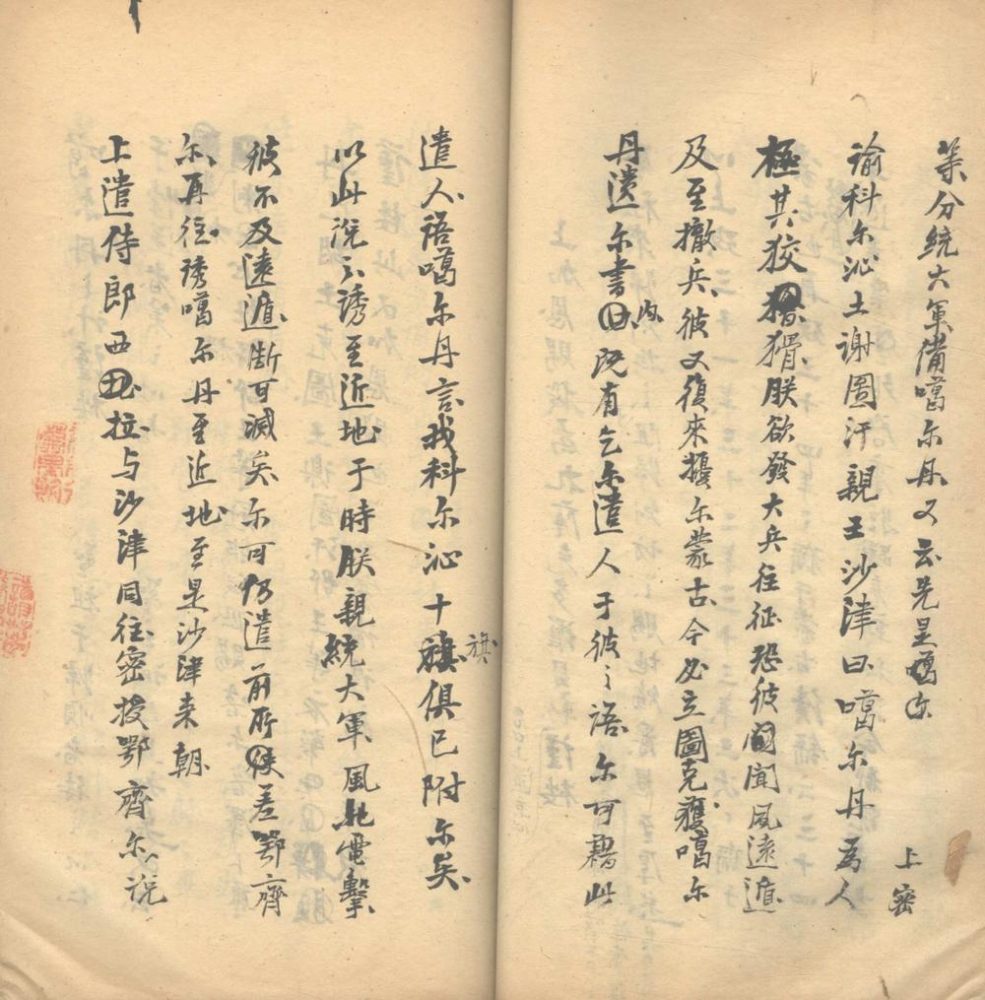 等分統大軍備噶尔丹又云先是噶尔
上密
谕科尔沁土谢圖汗親王沙津曰噶尔丹為人
極其狡猾朕欲發大兵往征恐彼闻聞风逺遁
及至撤兵彼又復來擾尔蒙古今必立圖克獲噶尔
丹遗尔書内既有乞尔遣人于彼之语尔可藉此
遣人语噶尔丹言我科尔沁十旗俱已附尔矣
旗
以此说去誘至近地于時朕親統大軍風馳電擊
彼不及逺遁断可滅矣尔可仍遣前所差鄂齊
尔再往誘噶尔丹至近地至是沙津来朝
上遣侍郎西拉与沙津同往密授鄂齊尔说